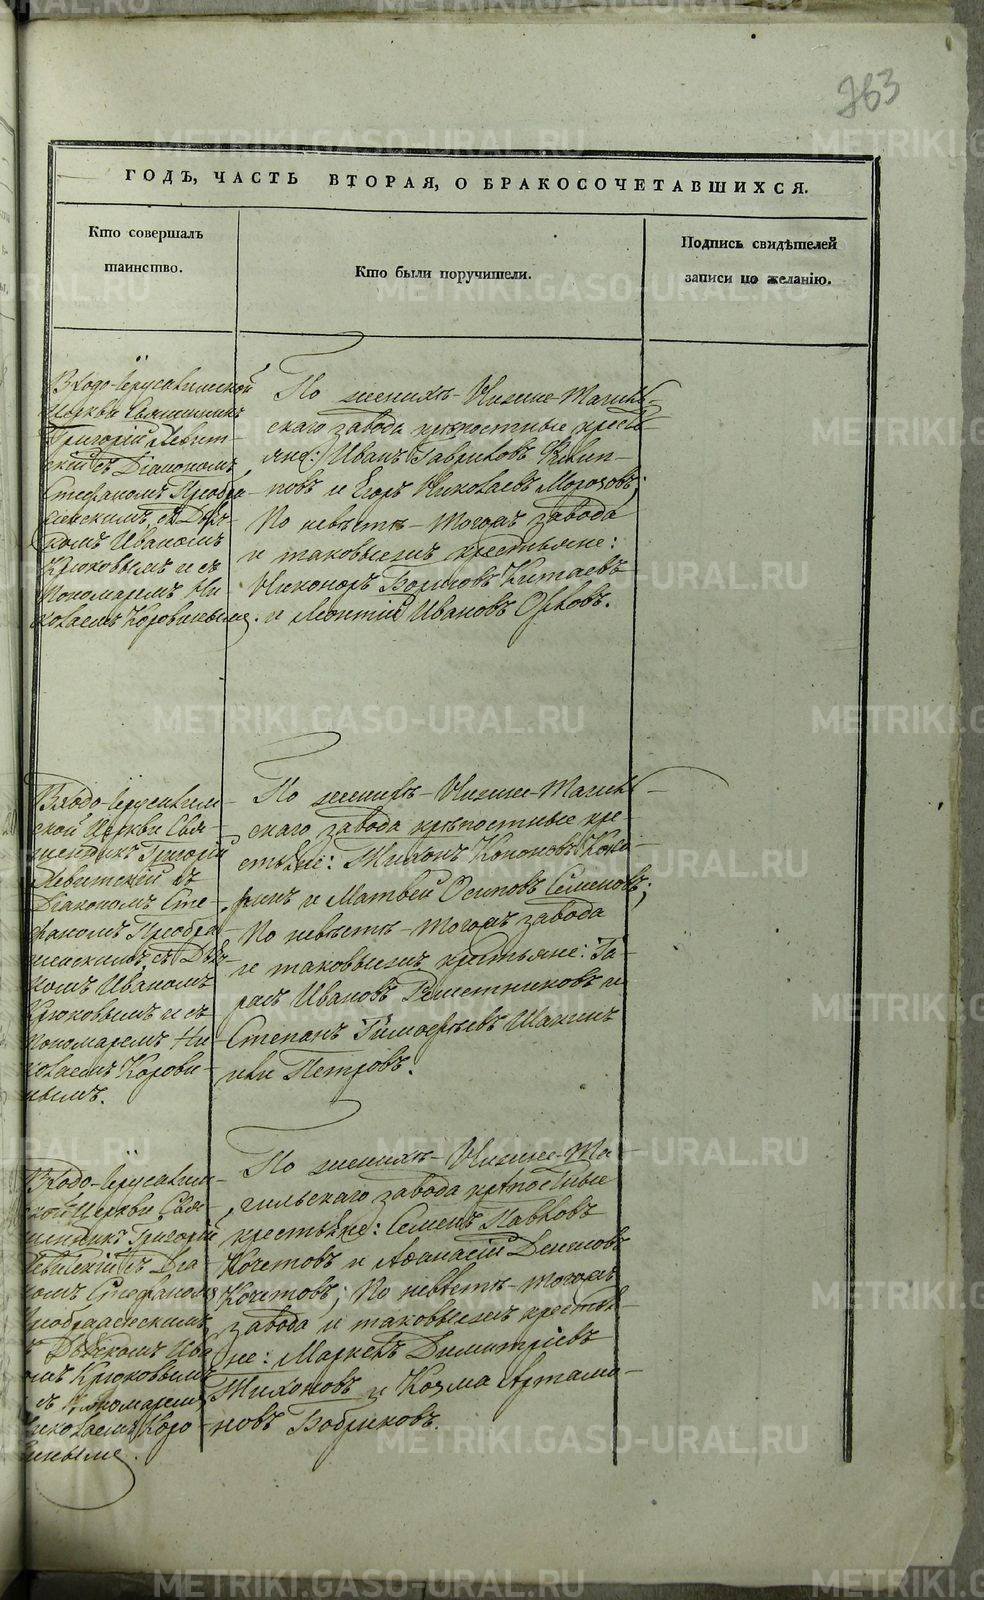 263
ГОДЪ, ЧАСТЬ ВТОРАЯ, О БРАКОСОЧЕТАВШИХСЯ.
Кто совершалъ
таинство.
Кто были поручители.
Подпись свидѣтелей
записи по желанію.
Входо-Іерусалимской
Церкви Священникъ
Григорій Левит-
скій съ Діакономъ
Стефаномъ Преобра-
женскимъ, съ Дьяч-
комъ Иваномъ
Крюковымъ и съ
Пономаремъ Ни-
колаемъ Коровинымъ.
По женихѣ - Нижне-Тагиль-
скаго завода крѣпостные кресть-
яне: Иванъ Гавриловъ Филип-
повъ и Егоръ Николаевъ Морозовъ;
По невѣстѣ - тогожъ завода
и таковыежъ крестьяне:
Никоноръ Борисовъ Китаевъ
и Леонтій Ивановъ Орловъ.
Входо-Іерусалим-
ской Церкви Свя-
щенникъ Григорій
Левитскій съ
Діакономъ Сте-
фаномъ Преобра-
женскимъ, съ Дьяч-
комъ Иваномъ
Крюковымъ и съ
Пономаремъ Ни-
колаемъ Корови-
нымъ.
По женихѣ - Нижне-Тагиль-
скаго завода крѣпостные кре-
стьяне: Тихонъ Кононовъ
и Матвей Осиповъ Семеновъ;
По невѣстѣ - тогожъ завода
и таковыежъ крестьяне: Та-
расъ Ивановъ Решетниковъ и
Степанъ Тимофѣевъ Шакинъ
или Петровъ.
Входо-Іерусалим-
ской Церкви Свя-
щенникъ Григорій
Левитскій съ Діа-
кономъ Стефаномъ
Преображенскимъ,
съ Дьячкомъ Ива-
номъ Крюковымъ
и съ Пономаремъ
Николаемъ Коро-
винымъ.
По женихѣ - Нижне-Та-
гильскаго завода крѣпостные
крестьяне: Семенъ Павловъ
Кочетовъ и Афанасій Денисовъ
Кочетовъ; По невѣстѣ - тогожъ
завода и таковыежъ крестья-
не: Маркелъ Димитріевъ
Тихоновъ и Козма Артамо-
новъ Бобриковъ.
METRIKI.GASO-URAL.RU